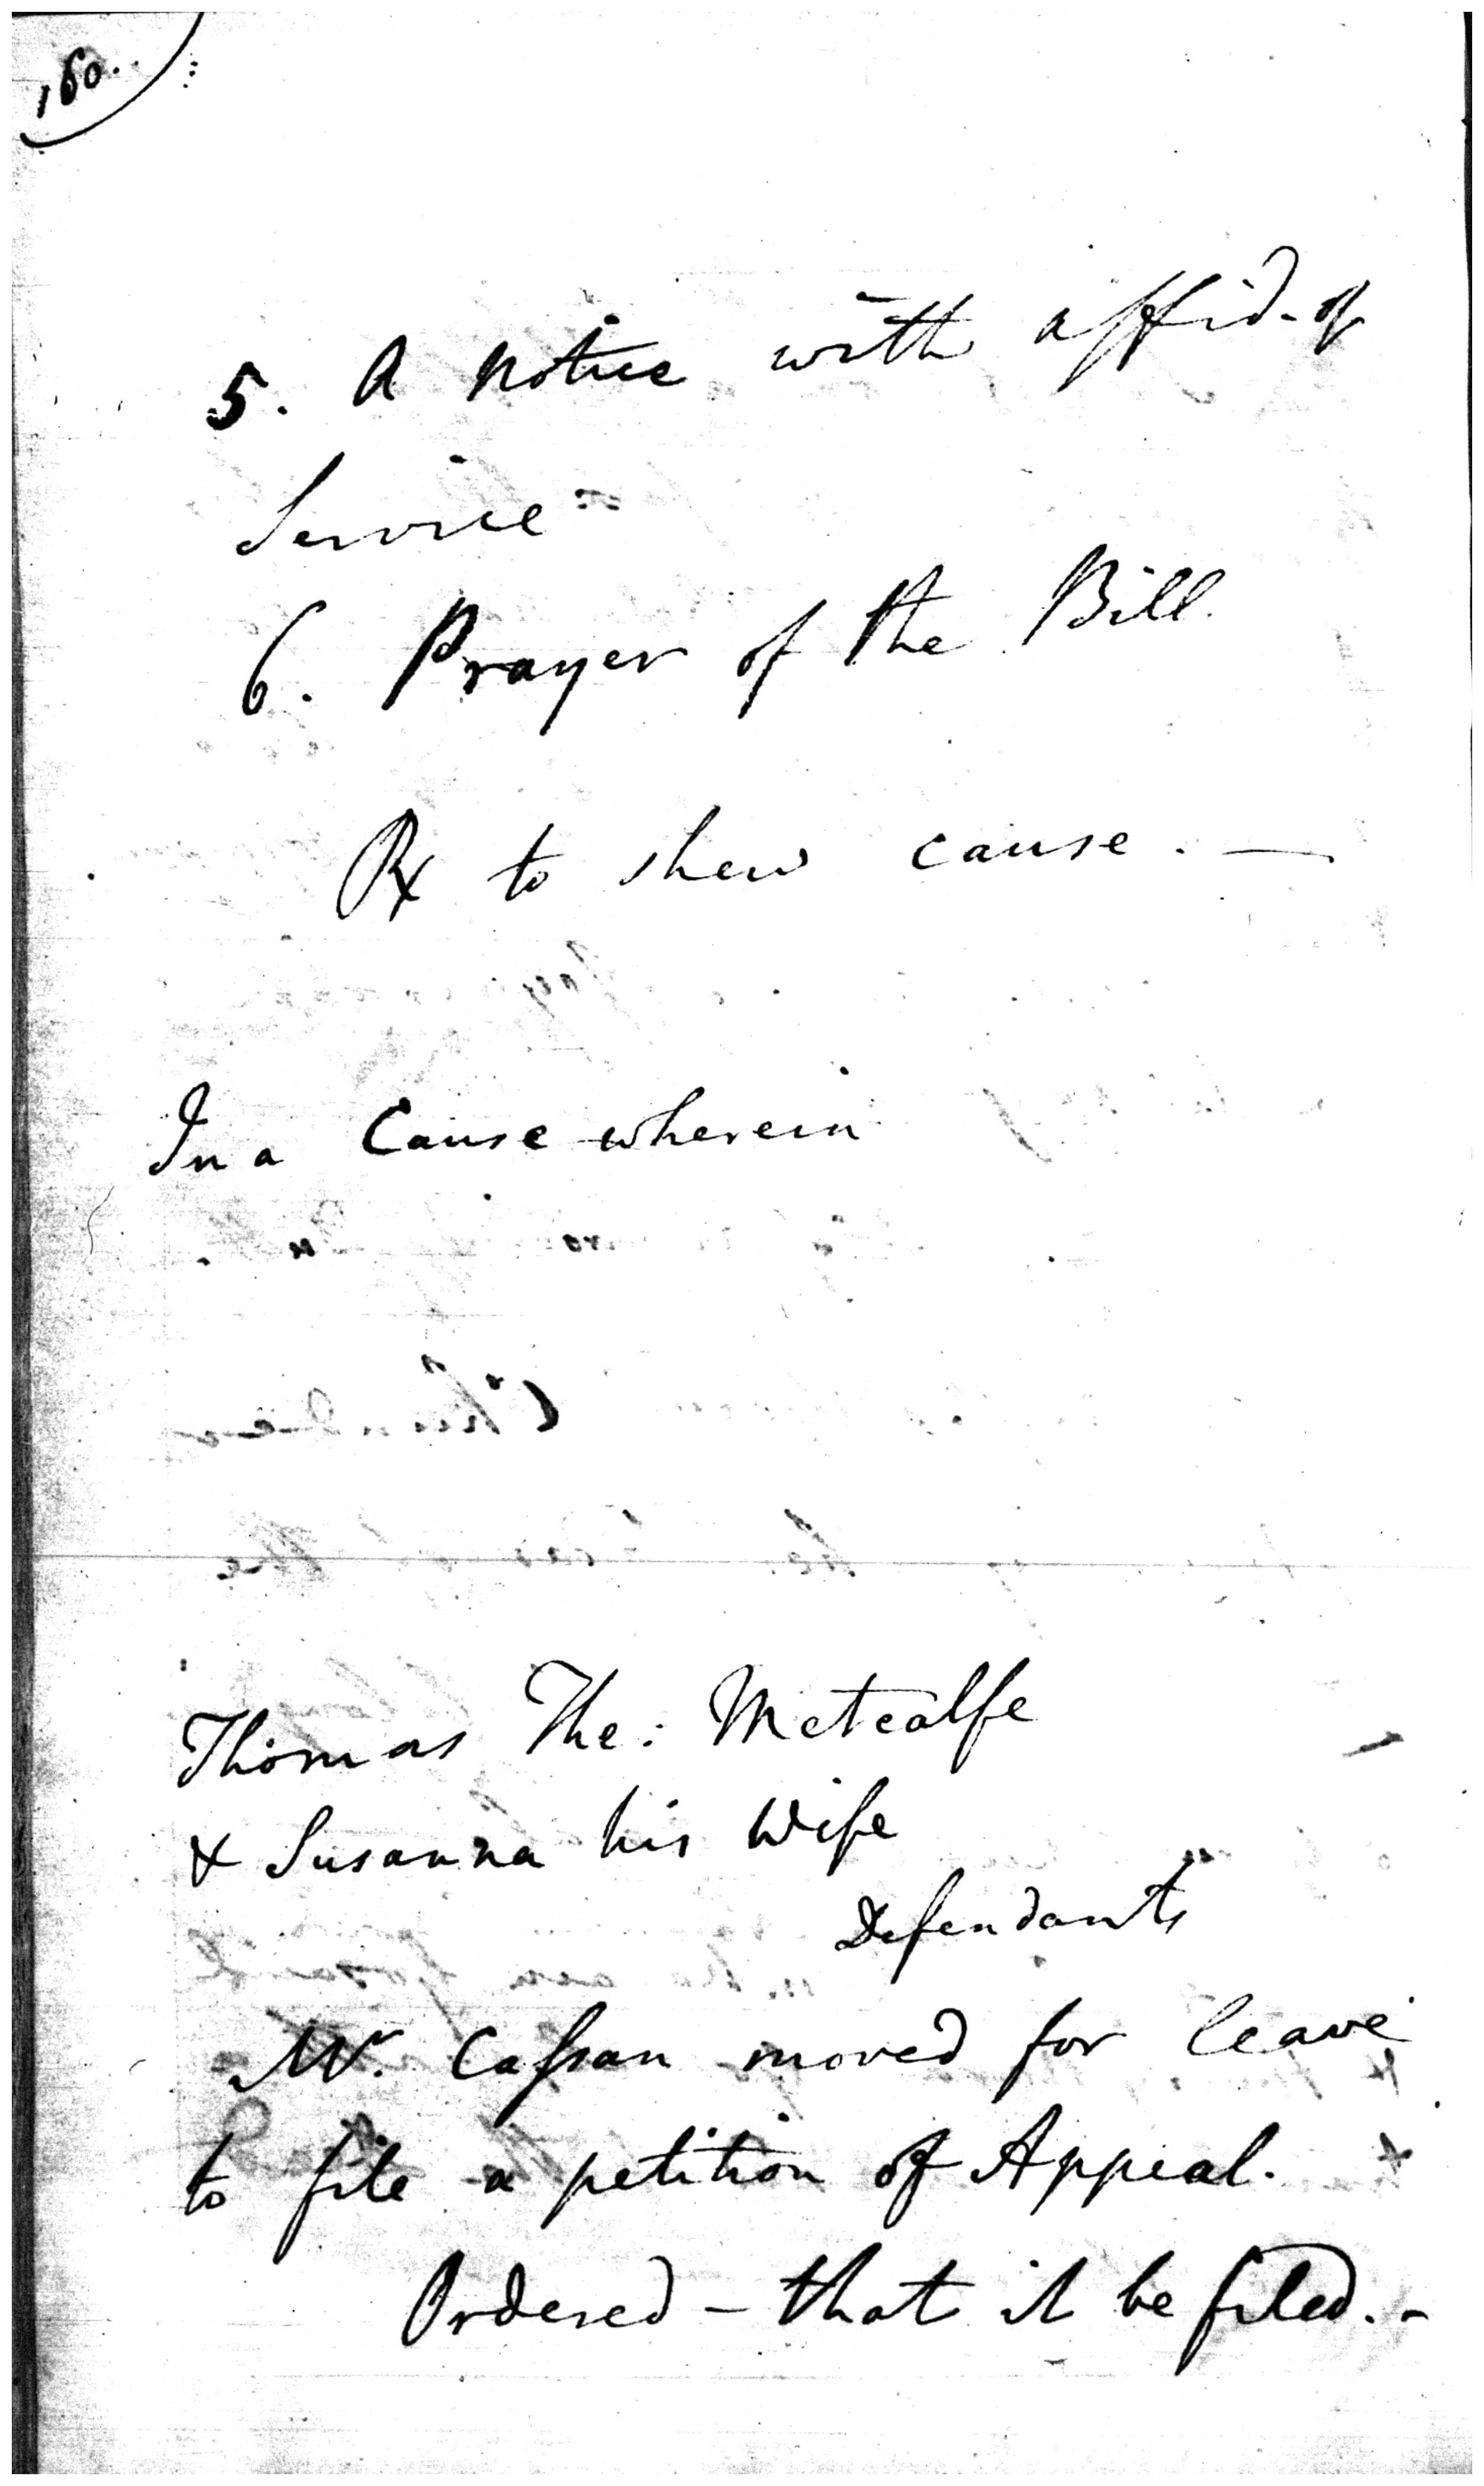 160.
5. A notice with affid. of
Service
6. Prayer of the Bill.
Rx to shew cause. —
In a Cause wherein
Thomas The: Metcalfe
& Susanna his Wife
Defendants
Mr. Caſsan moved for leave
to file a petition of Appeal.
Ordered – that it be filed. –